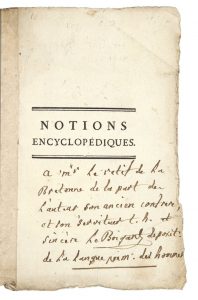 NOTIONS
ENCYCLOPÉDIQUES.
a mr le retif de la
Bretonne de la part de
l'auteur son ancien confrere
et son serviteur t. h. et
sincère Le Brigant
de la langue prim. des hommes